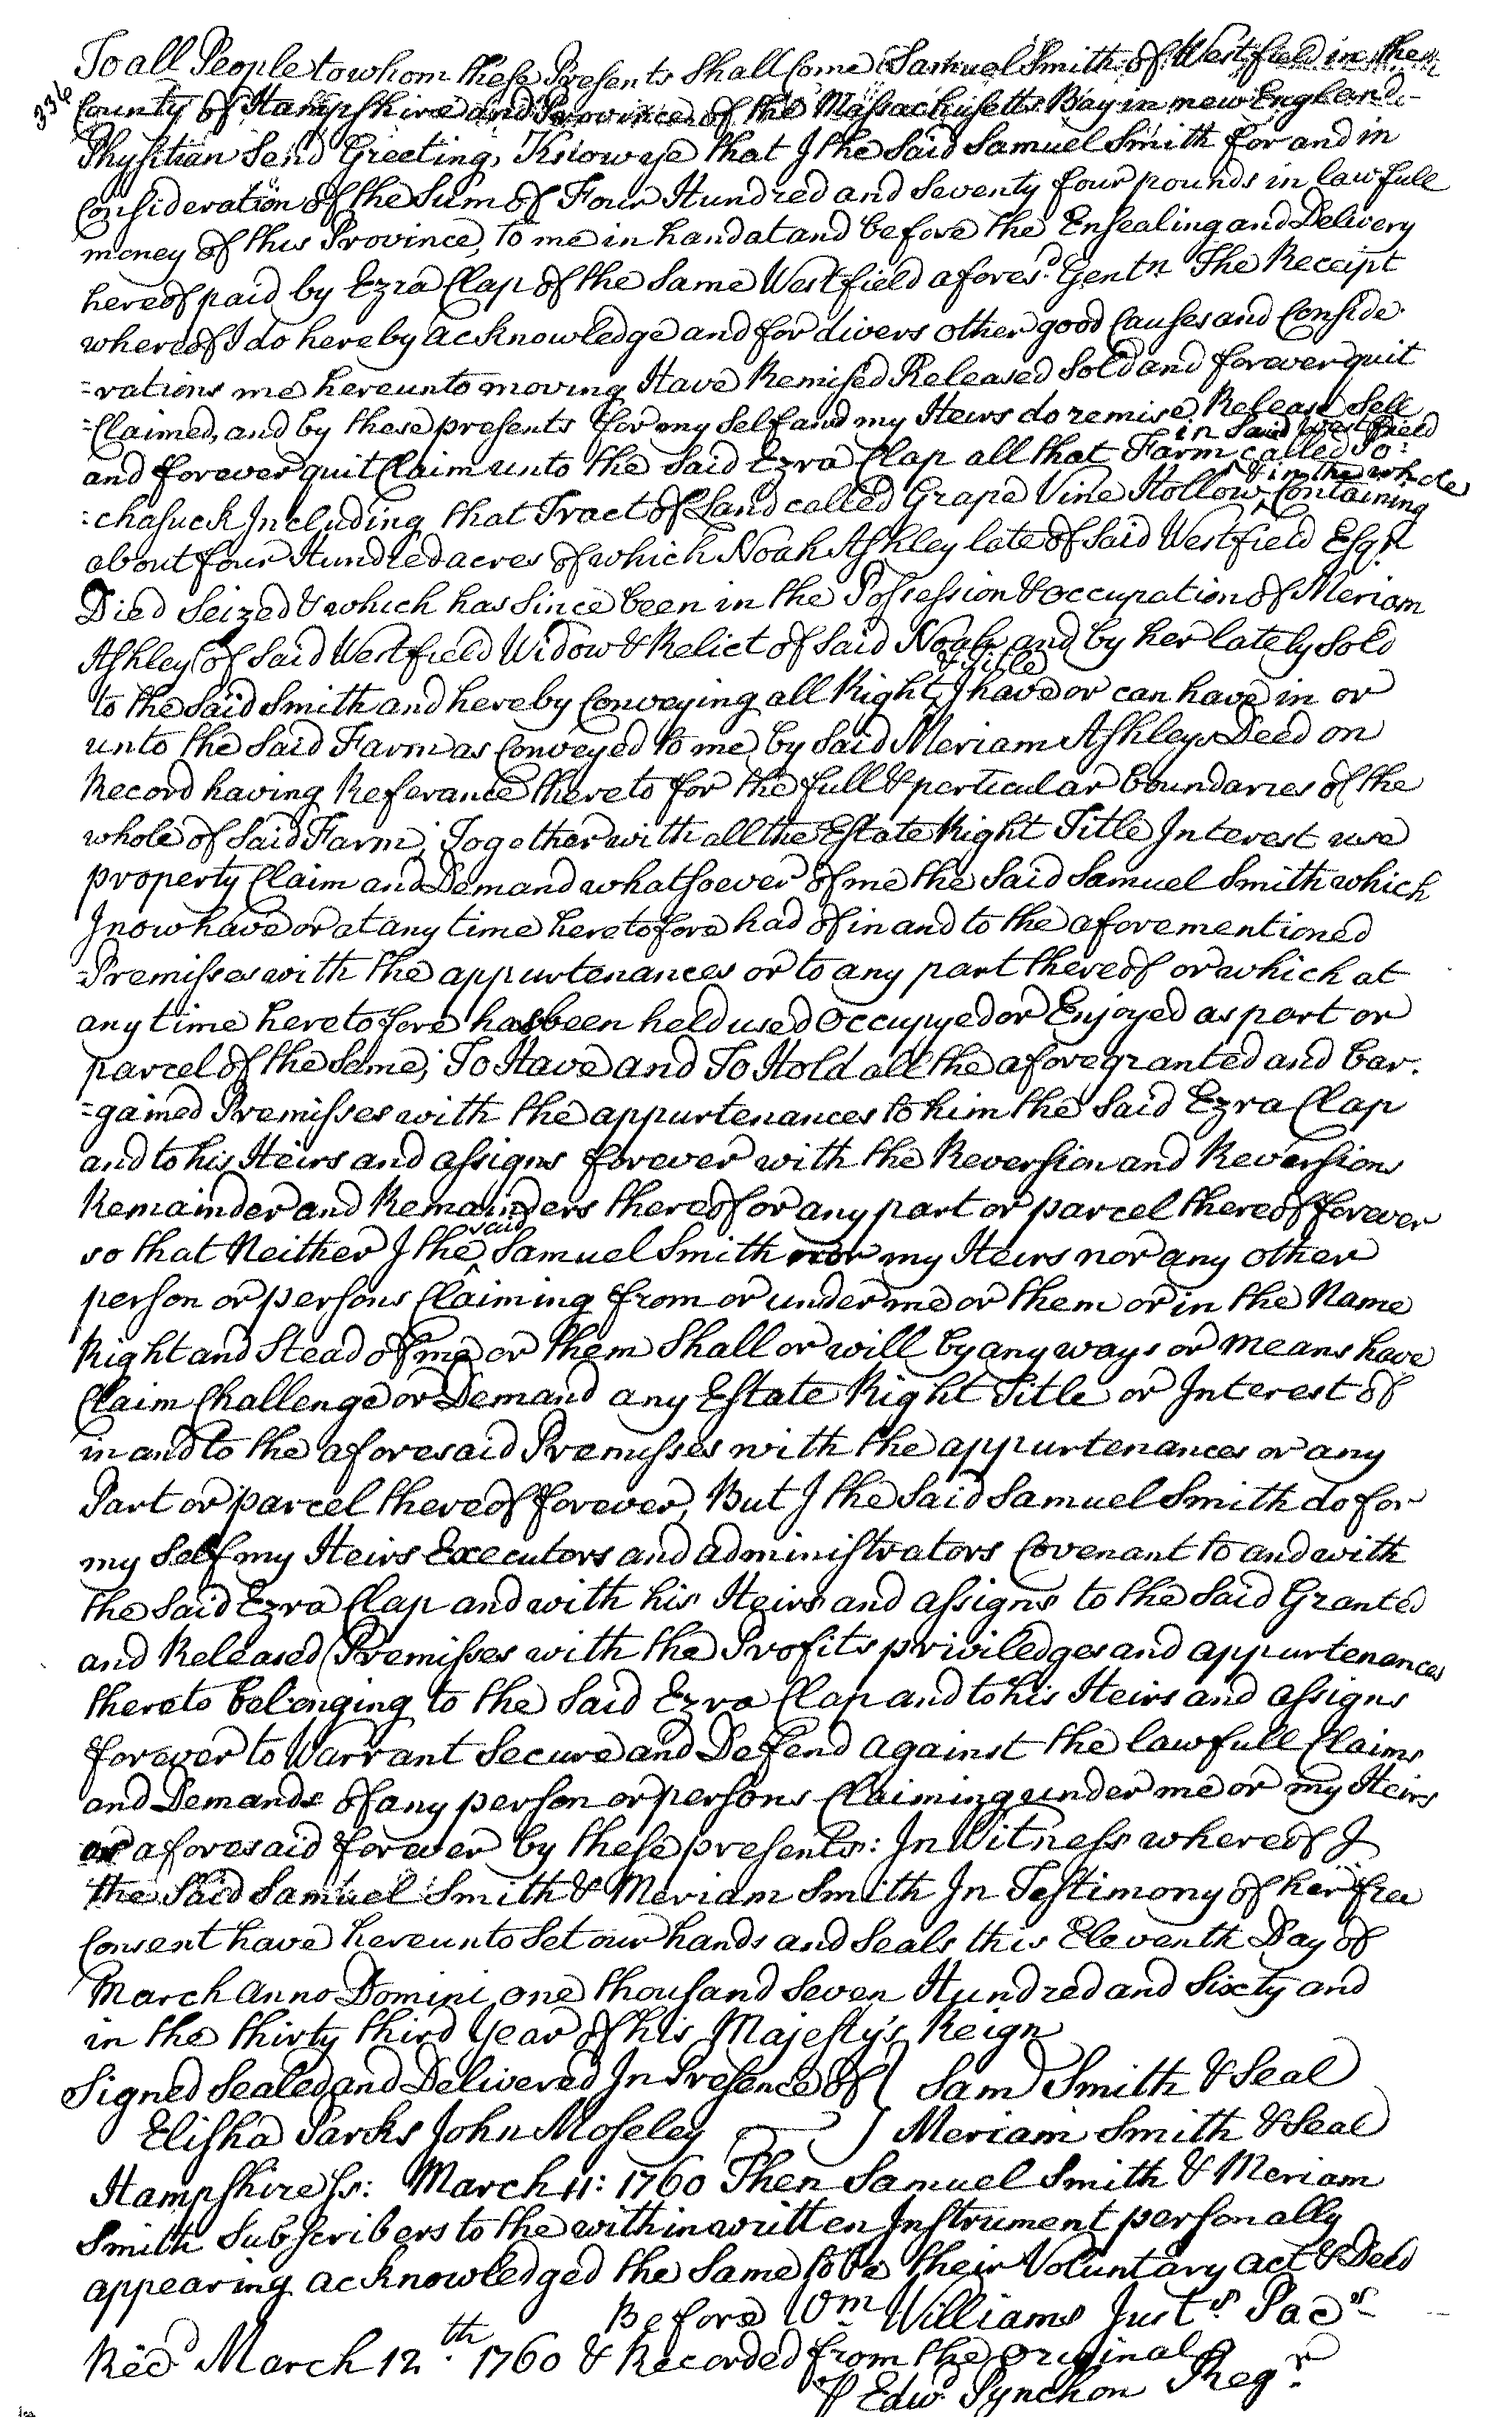 336
To all People to whom these Presents Shall Come Samuel Smith of Westfield in the
County of Hampshire and Province of the Massachusetts Bay in new England
Physitian Send Greeting, Know ye that I the Said Samuel Smith for and in
Consideration of the Sum of Four Hundred and Seventy four pounds in lawfull
money of this Province, to me in hand at and before the Ensealing and Delivery
hereof paid by Ezra Clap of the Same Westfield afores.d Gent.n The Receipt
whereof I do hereby acknowledge and for divers other good Causes and Conside
=rations me hereunto moving Have Remised Released Sold and forever quit
=Claimed, and by these presents for my Self and my Heirs do remise Release Sell
in said Westfield
and forever quit Claim unto the Said Ezra Clap all that Farm called Po:
& in the whole
=chasuck Including that Tract of Land called Grape Vine Hollow ^ Containing
about four Hundred acres of which Noah Ashley late of Said Westfield Esq.r
Died Seized & which has Since been in the Possession & occupation of Meriam
Ashley of Said Westfield Widow & Relict of Said Noah and by her lately Sold
& Title
to the Said Smith and hereby Conveying all Right ^ I have or can have in or
unto the Said Farm as Conveyed to me by Said Meriam Ashleys Deed on
Record having Referance thereto for the full & perticular boundaries of the
whole of Said Farm; Together with all the Estate Right Title Interest use
property Claim and Demand whatsoever of me the Said Samuel Smith which
I now have or at any time heretofore had of in and to the aforementioned
Premisses with the appurtenances or to any part thereof or which at
any time heretofore has been held used Occupyed or Enjoyed as part or
parcel of the Same; To Have and To Hold all the aforegranted and bar.
=gained Premisses with the appurtenances to him the Said Ezra Clap
and to his Heirs and assigns forever with the Reversion and Reversions
Remainder and Remainders thereof or any part or parcel thereof forever
said
so that Neither I the ^ Samuel Smith nor my Heirs nor any other
person or persons Claiming from or under me or them or in the Name
Right and Stead of me or them Shall or will by any ways or means have
Claim Challenge or Demand any Estate Right Title or Interest of
in and to the aforesaid Premisses with the appurtenances or any
Part or parcel thereof forever, But I the Said Samuel Smith do for
my Self my Heirs Executors and administrators Covenant to and with
the Said Ezra Clap and with his Heirs and assigns to the Said Granted
and Released Premisses with the Profits priviledges and appurtenances
thereto belonging to the Said Ezra Clap and to his Heirs and assigns
forever to Warrant Secure and Defend against the lawfull Claims
and Demands of any person or persons Claiming under me or my Heirs
as aforesaid forever by these presents: In Witness whereof I
the Said Samuel Smith & Meriam Smith In Testimony of her free
Consent have hereunto Set our hands and Seals this Eleventh Day of
March Anno Domini one thousand Seven Hundred and Sixty and
in the thirty third Year of his Majesty's Reign
Signed Sealed and Delivered In Presence of } Sam Smith & Seal
Elisha Parks John Moseley } Meriam Smith & Seal
Hampshire Ss: March 11: 1760 Then Samuel Smith & Meriam
Smith Subscribers to the within written Instrument personally
appearing acknowledged the Same to be their Voluntary act & Deed
Before W.m Williams Just.s Pac.s
Rec.d March 12.th 1760 & Recorded from the Original
P Edw.d Pynchon Reg.r